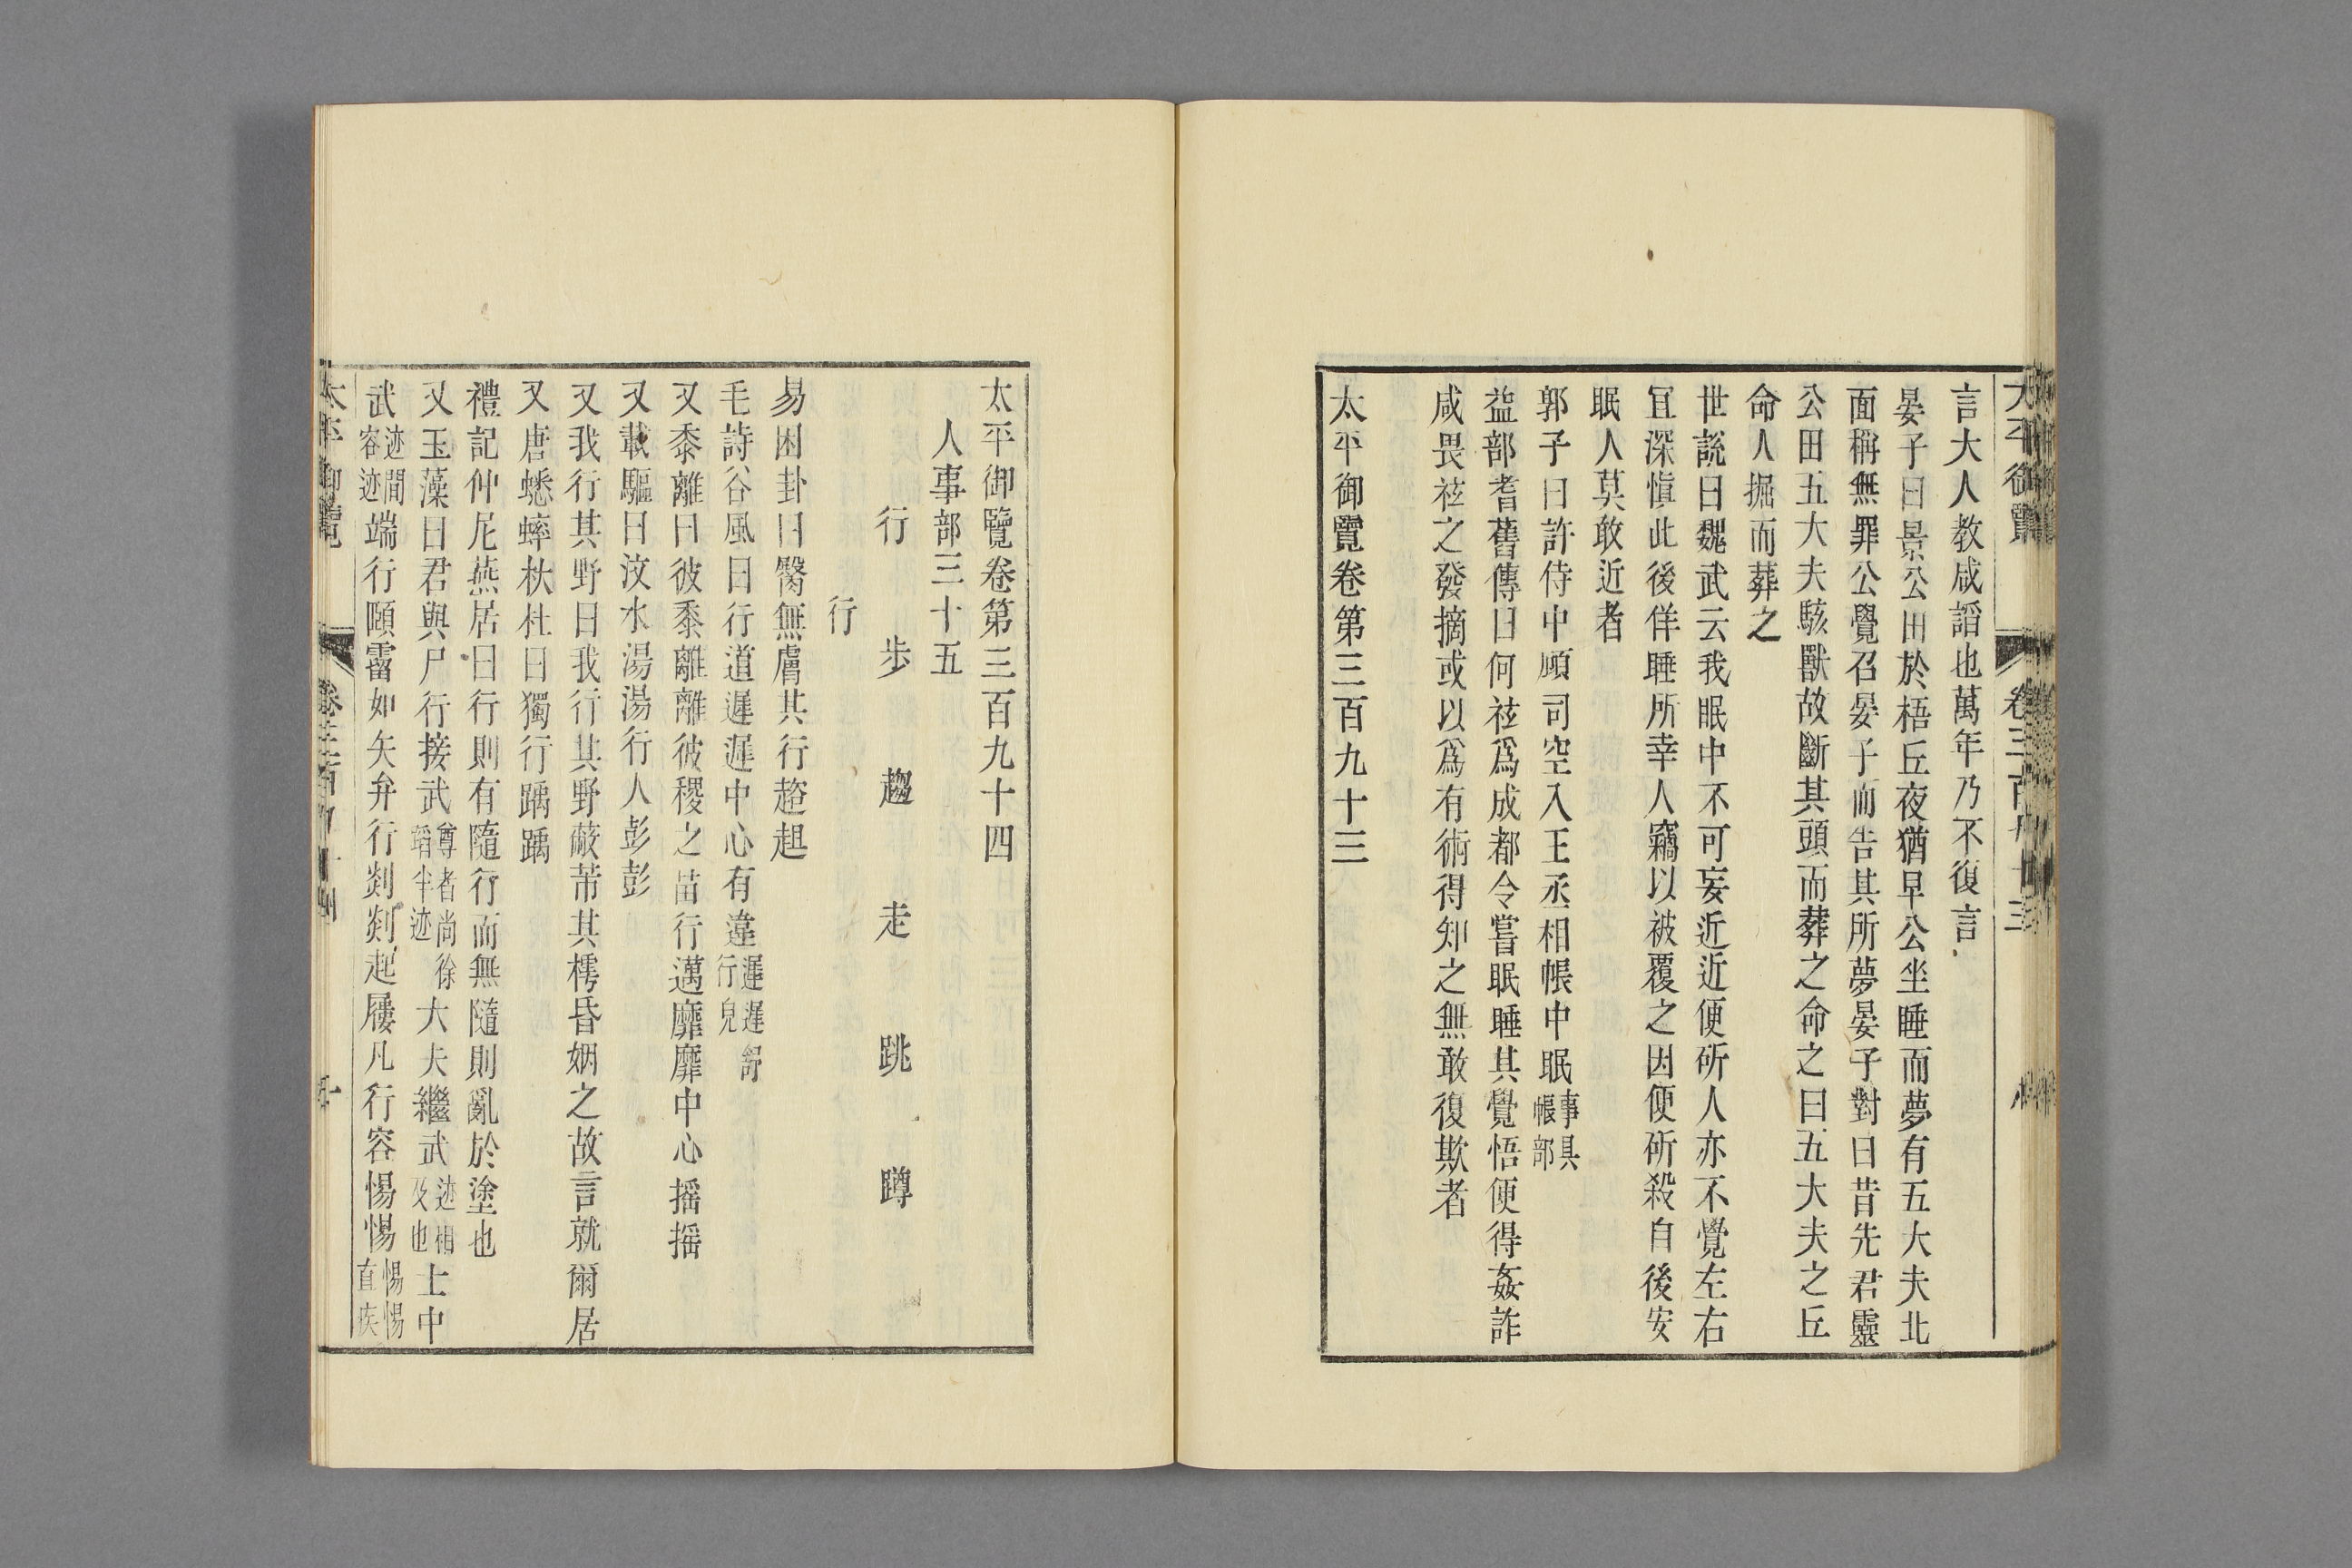 言大人教咸謟也萬年乃不復言
晏子曰景公田於梧丘夜猶早公坐睡而夢有五大夫北
面稱無罪公覺召晏子而告其所夢晏子對曰昔先君靈
公田五大夫駭獸故斷其頭而葬之命之曰五大夫之丘
命人掘而葬之
世說曰魏武云我眠中不可妄近近便斫人亦不覺左右
宜深慎此後佯睡所幸人竊以被覆之因便斫殺自後安
眠人莫敢近者
郭子曰許侍中顧司空入王丞相帳中眠事具帳部
益部耆舊傳曰何祗爲成都令嘗眠睡其覺悟便得姦詐
咸畏祗之發摘或以爲有術得知之無敢復欺者
太平御覽卷第三百九十三
太平御覽卷第三百九十四
人事部三十五
行 步 趨 走 跳 蹲
行
易困卦曰臀無膚其行趑趄
毛詩谷風曰行道遲遲中心有違遲遲舒行皃
又黍離曰彼黍離離彼稷之苗行邁靡靡中心搖搖
又載驅曰汶水湯湯行人彭彭
又我行其野曰我行其野蔽芾其樗昏姻之故言就爾居
又唐蟋蟀杕杜曰獨行踽踽
禮記仲尼燕居曰行則有隨行而無隨則亂於塗也
又玉藻曰君與尸行接武尊者尚徐蹈半迹大夫繼武迹相及也士中
武迹間容迹端行頤霤如矢弁行剡剡起屨凡行容惕惕惕惕直疾